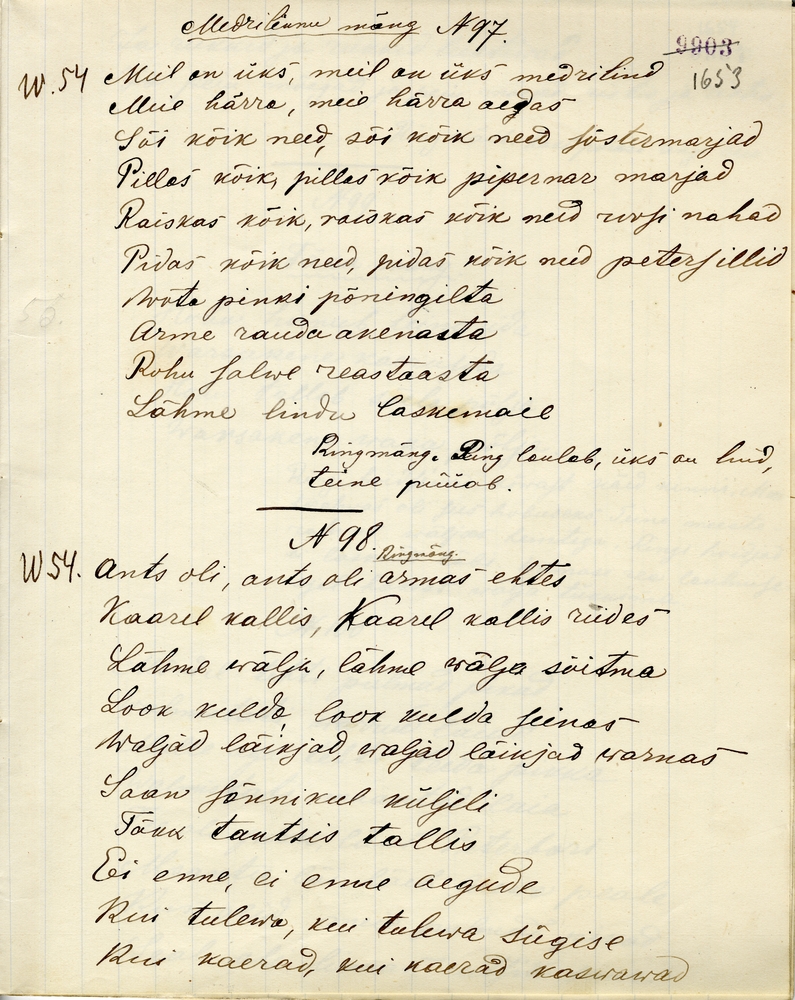 Medrilinnu mäng N97.
9903
1653
W.54 Meil on üks, meil on üks medrilind
Meie härra, meie härra aedas
Sõi kõik need, sõi kõik need sõstermarjad
Pillas kõik, pillas kõik pipernar marjad
Raiskas kõik, raiskas kõik neid roosi nahad
Pidas kõik need, pidas kõik need petersillid
Wõta pinki põningilta
Arme rauda akenasta
Rohu salwe reastaasta
Lähme lindu laskemaie
Ringmäng. Ring laulab, üks on lind,
teine püüab.
N 98.
Ringmäng.
W54. Ants oli, ants oli armas ehtes
Kaarel kallis, Kaarel kallis riides
Lähme wälja, lähme wälja sõitma
Look kulda, look kulda seinas
Waljad läikjad, waljad läikjad warnas
Saan sõnnikul küljeli
Täkk tantsis tallis
Ei enne, ei enne aegude
Kui tulewa, kui tulewa sügise
Kui kaerad, kui kaerad kaswawad